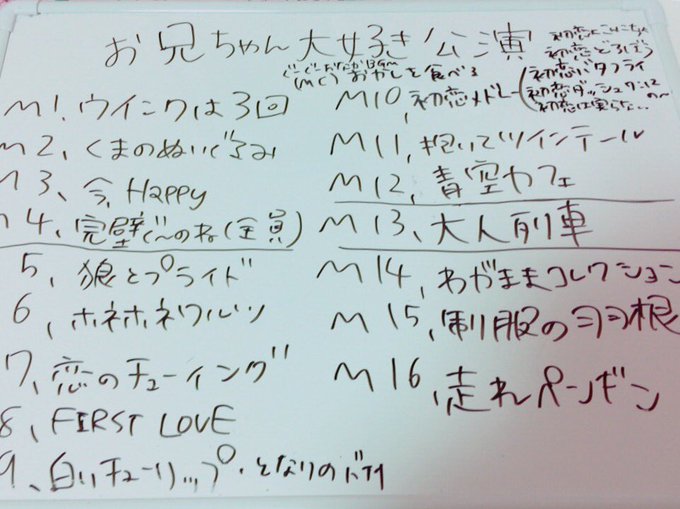 お兄ちゃん大好き公演
ぐーぐーおなかBGM
(MC) おかしを食べる
M1. ウインクは3回
M2、くまのぬいぐるみ
M3、今、Happy
M4、完璧ぐ〜のね(全員)
5、狼とプライド
6、ホネホネワルツ
7、恋のチューイング
8、FIRST LOVE
9、白いチューリップ・となりのバナナ
M10、初恋メドレー
初恋どろぼう
初恋バタフライ
初恋ダッシュ
初恋は実らない
M11、抱いてツインテール
M12、青空カフェ
M13、大人列車
M14、わがままコレクション
M15、制服の羽根
M16、走れペンギン